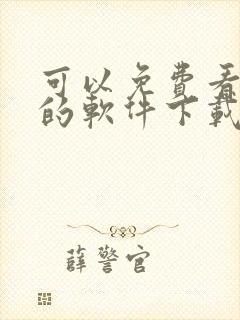 可以免费看
的軟件下載
薛警官